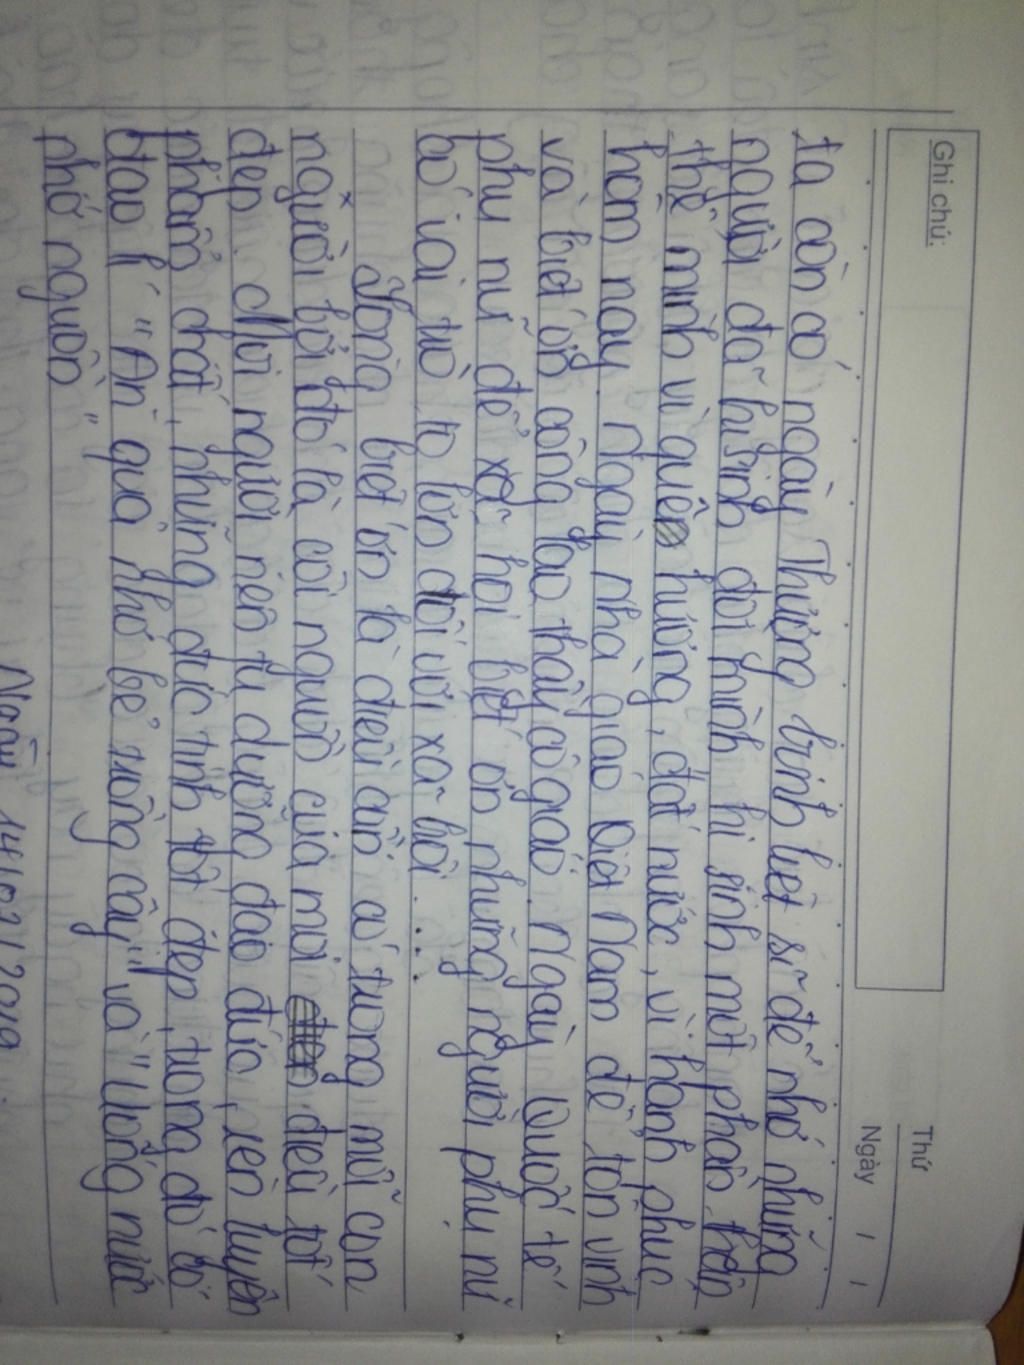 Ghi chú:
Thứ
Ngày / /
ta còn có ngày Thương binh liệt sĩ để nhớ những
người đã hi sinh đời mình hi sinh một phần thân
thể mình vì quê hương, đất nước, vì hạnh phúc
hôm nay. Ngày nhà giáo Việt Nam để tôn vinh
và biết ơn công lao thầy cô giáo. Ngày Quốc tế
phụ nữ để xã hội biết ơn những người phụ nữ
có vai trò to lớn đối với xã hội....
Lòng biết ơn là điều cần có trong mỗi con
người bởi đó là cội nguồn của mọi điều tốt
đẹp. Mọi người nên tu dưỡng đạo đức, rèn luyện
phẩm chất, những đức tính tốt đẹp, trong đó có
đạo lí "Ăn quả nhớ kẻ trồng cây" và "Uống nước
nhớ nguồn"
Ngày 14/02/2019